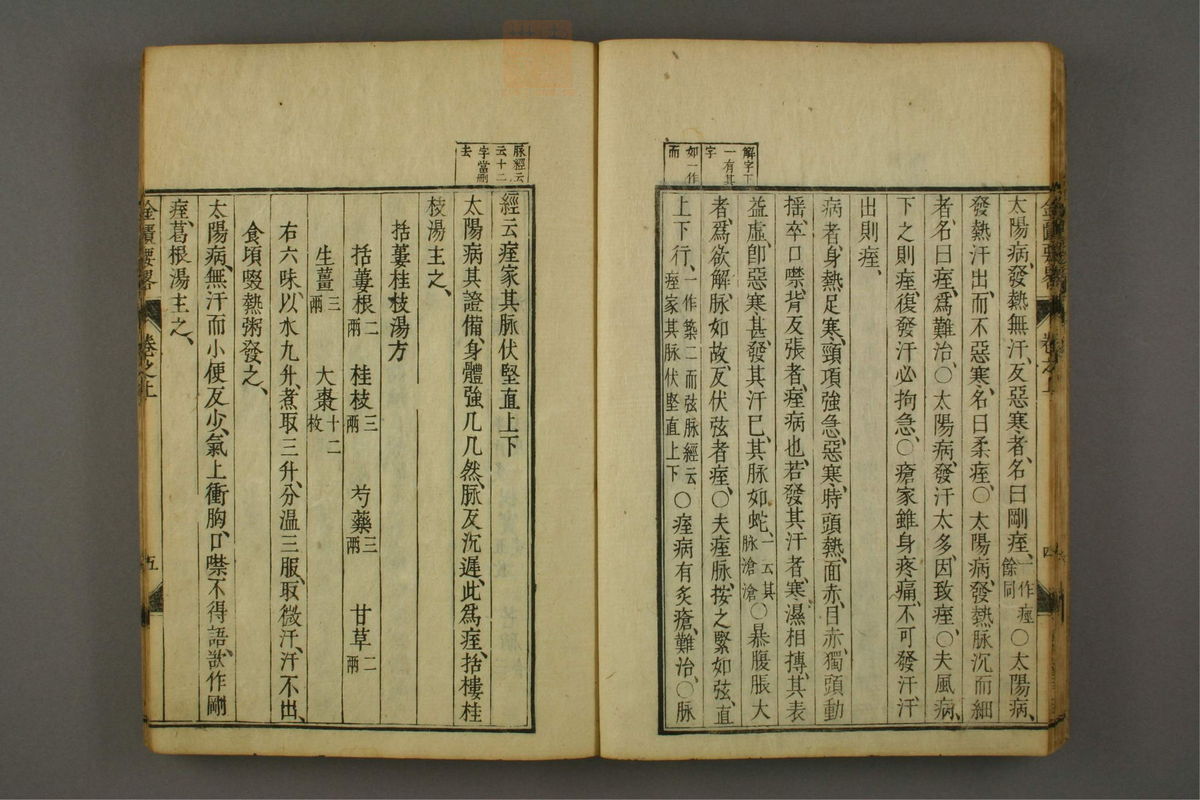 解字下
一有其
字
如一作
而
太陽病、發熱無汗、反惡寒者、名曰剛痓、一作痙餘同○太陽病、
發熱汗出、而不惡寒、名曰柔痓、○太陽病、發熱脉沉而細
者、名曰痓、爲難治、○太陽病、發汗太多、因致痓、○夫風病、
下之則痓、復發汗必拘急、○瘡家雖身疼痛、不可發汗、汗
出則痓、
病者、身熱足寒、頸項強急、惡寒、時頭熱、面赤、目赤、獨頭動
搖、卒口噤、背反張者、痓病也、若發其汗者、寒濕相摶、其表
益虛、卽惡寒甚、發其汗已、其脉如蛇、一云其脉滄滄○暴腹脹大
者、爲欲解、脉如故、反伏弦者痓、○夫痓脉、按之緊如弦、直
上下行、一作築築而弦脉經云痓家其脉伏堅直上下○痓病有灸瘡、難治、○脉
金匱要畧
卷之上
四
脉經云
云十二
字當刪
去
經云痓家其脉伏堅直上下
太陽病其證備、身體強几几然、脉反沉遲、此爲痓、括樓桂
枝湯主之、
括蔞桂枝湯方
括蔞根二兩　桂枝三兩　芍藥三兩　甘草二兩
生薑三兩　大棗十二枚
右六味、以水九升、煮取三升、分溫三服、取微汗、汗不出、
食頃啜熱粥發之、
太陽病、無汗而小便反少、氣上衝胸、口噤不得語、欲作剛
痓、葛根湯主之、
金匱要畧
卷之上
五